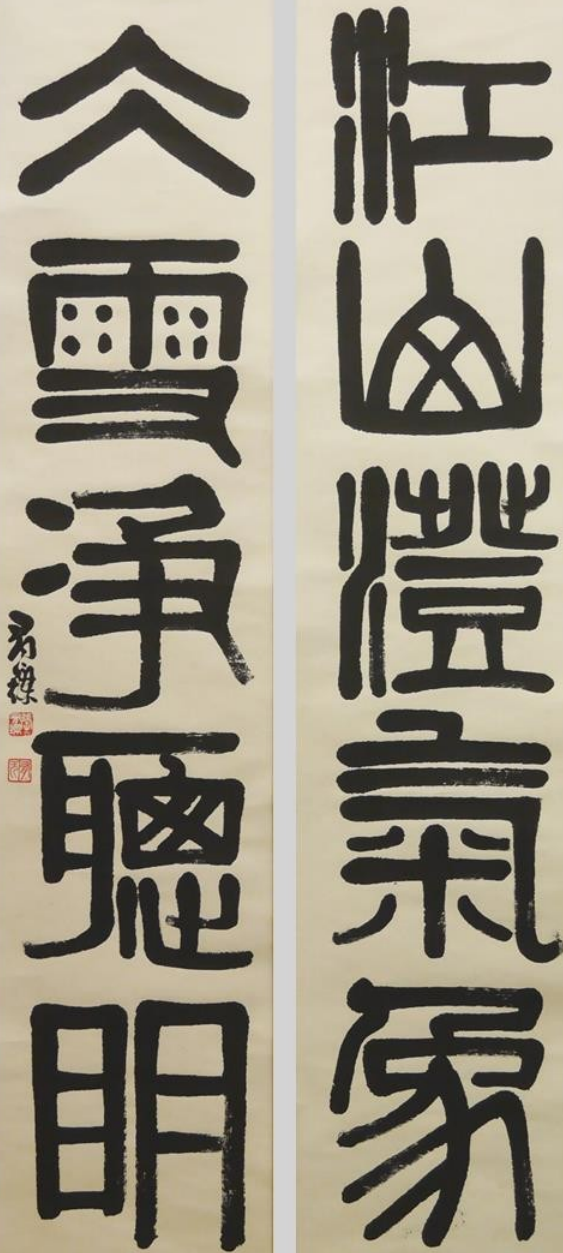 江山澄氣象
仌雪净聰明